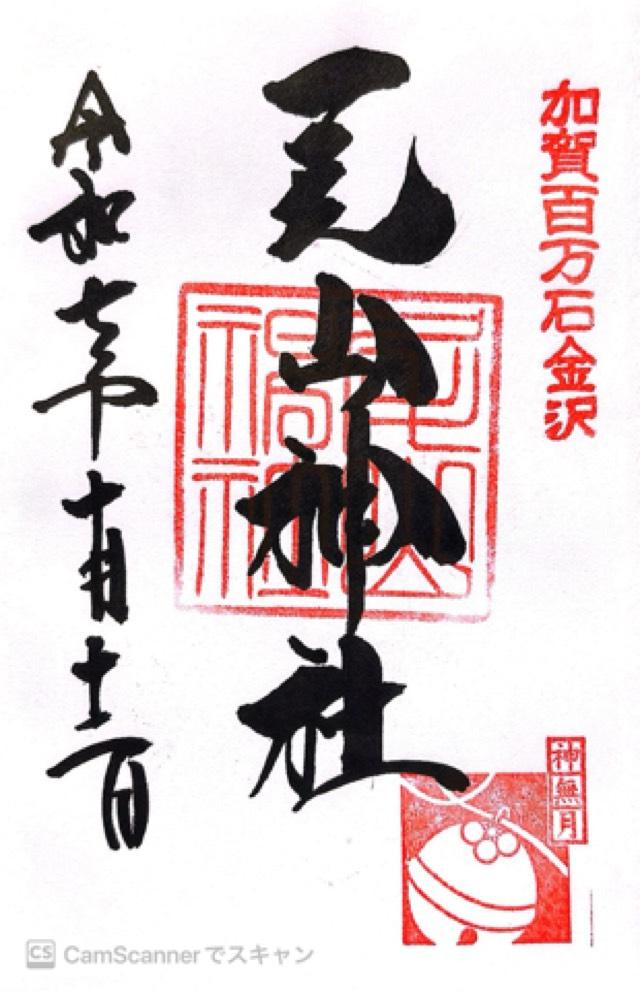 加賀百万石金沢
尾山神社
令和七年十月
神無月
CS CamScannerでスキャン